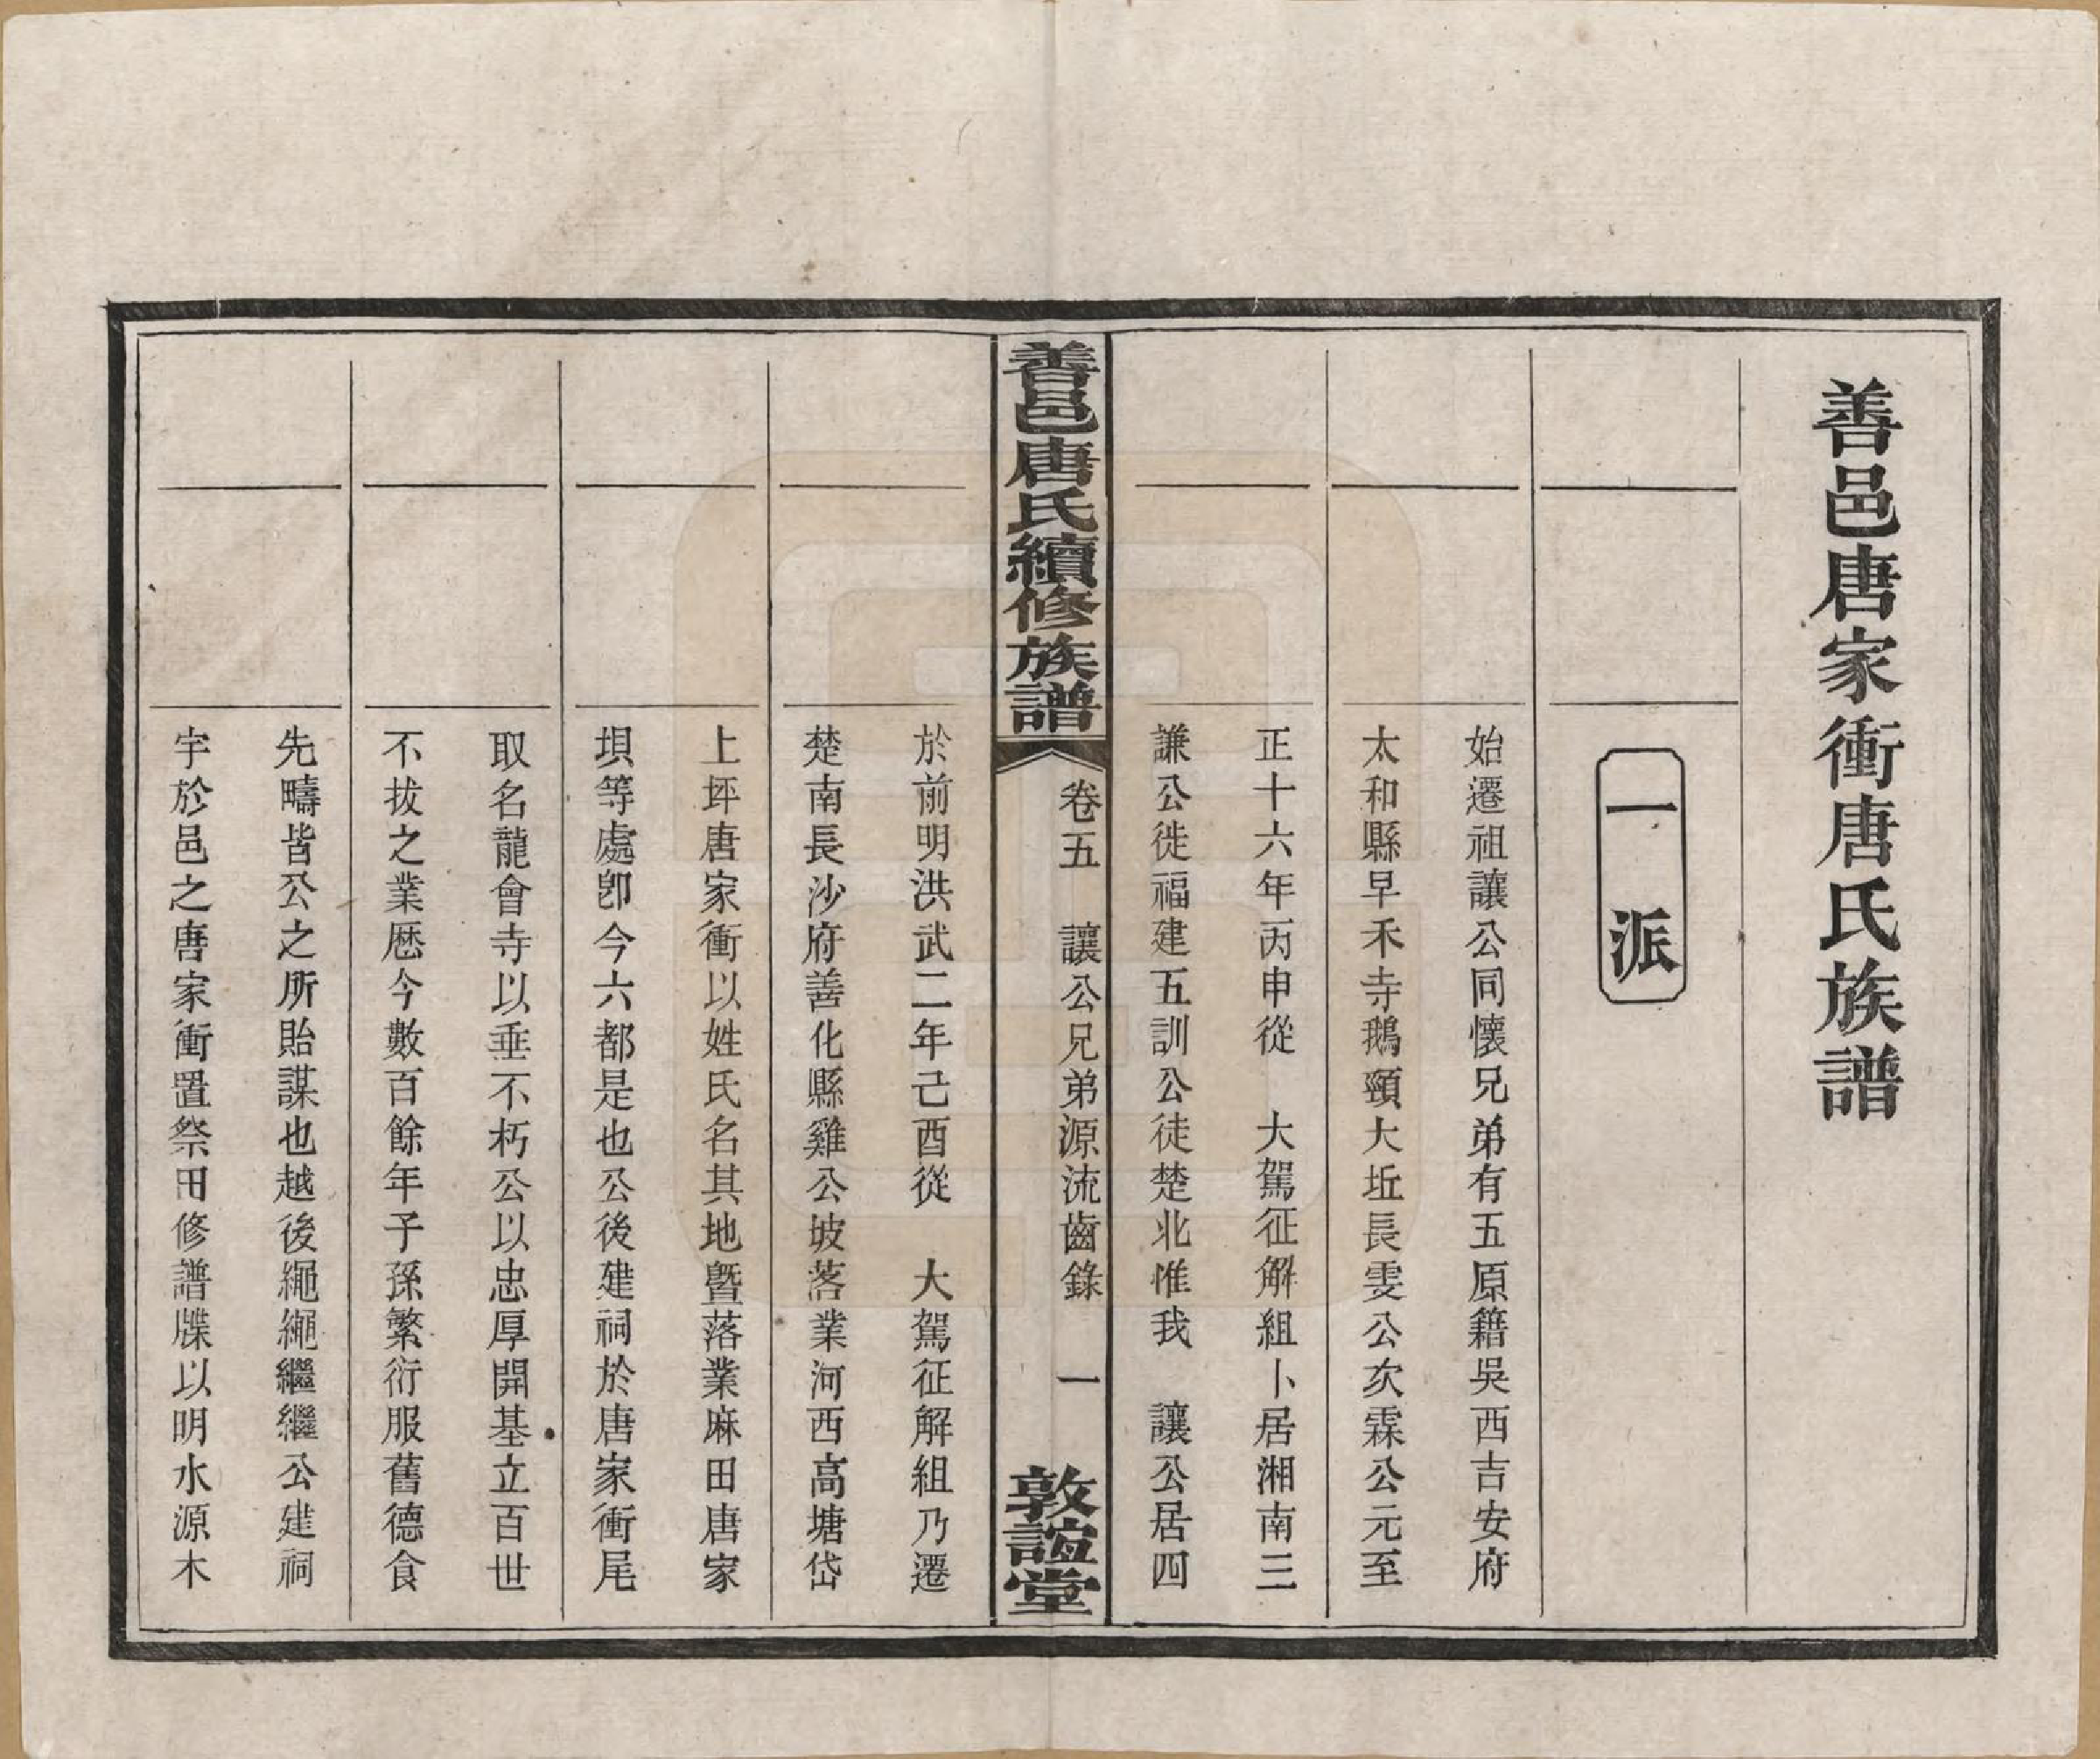 善邑唐家衝唐氏族譜
一派
始遷祖讓公同懷兄弟有五原籍吳西吉安府
太和縣早禾寺鵝頸大坵長雯公次霖公元至
正十六年丙申從　大駕征解組卜居湘南三
謙公徙福建五訓公徒楚北惟我　讓公居四
善邑唐氏續修族譜
卷五　讓公兄弟源流齒錄　一
敦誼堂
於前明洪武二年己酉從　大駕征解組乃遷
楚南長沙府善化縣雞公坡落業河西高塘岱
上坪唐家衝以姓氏名其地暨落業麻田唐家
垻等處卽今六都是也公後建祠於唐家衝尾
取名龍會寺以垂不朽公以忠厚開基立百世
不拔之業歷今數百餘年子孫繁衍服舊德食
先疇皆公之所貽謀也越後繩繩繼繼公建祠
宇於邑之唐家衝置祭田修譜牒以明水源木